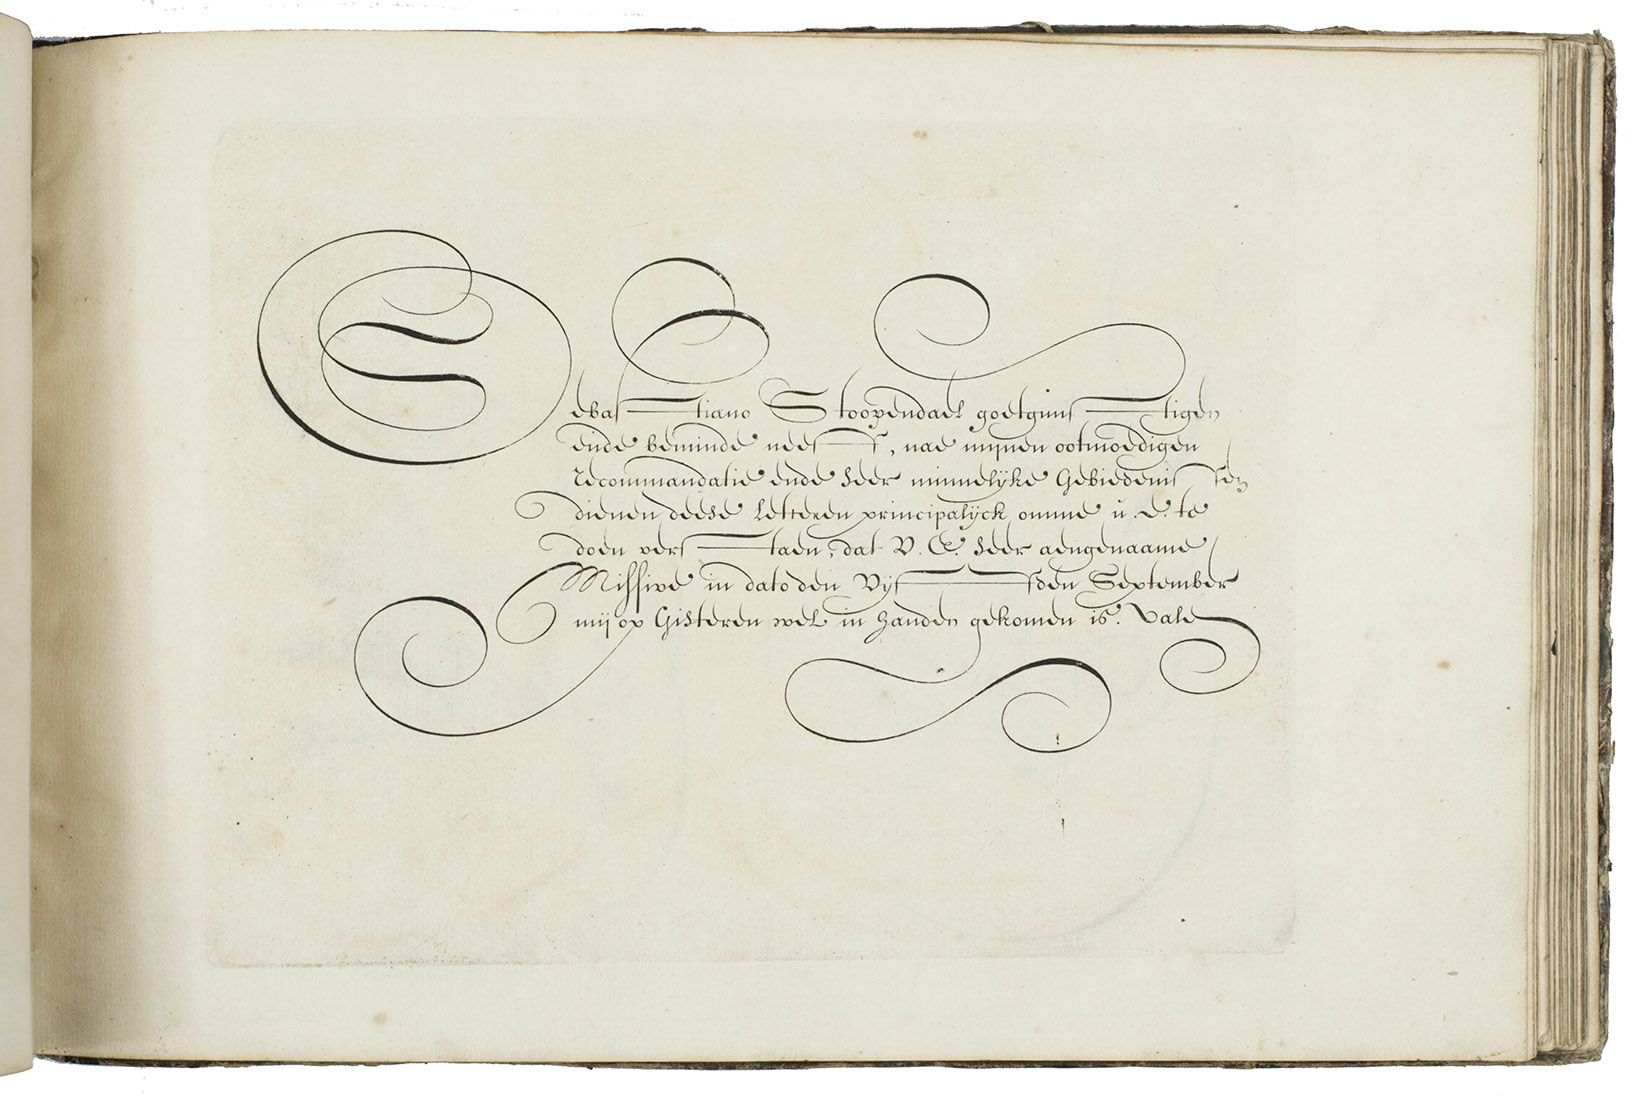 Sebastiano Stoopendael goetgunstigen
ende beminde neef, nae mijnen ootmoedigen
recommandatie ende seer minnelijke Gebiedenissen
dienen deese letteren principalijck omme u. E. te
doen verstaen, dat V. E. seer aengenaame
Missive in dato den Vijfden September
mij op Gisteren wel in handen gekomen is. Vale